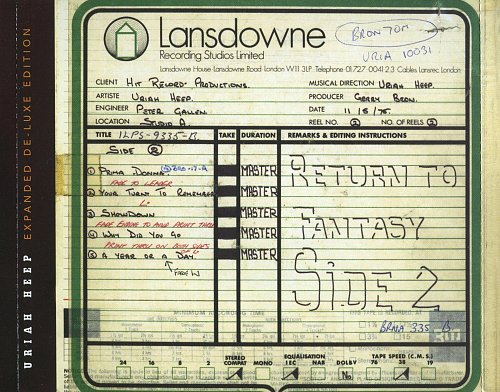 Lansdowne
Recording Studios Limited
Lansdowne House Lansdowne Road London W11 3LP Telephone 01-727 0041 2 3 Cables Lansrec London
BRONTON
URIA 10031
CLIENT HIT RECORD PRODUCTIONS. MUSICAL DIRECTION URIAH HEEP.
ARTISTE URIAH HEEP. PRODUCER GERRY BRON.
ENGINEER PETER GALLEN. DATE 11/5/75.
LOCATION STUDIO A. REEL NO. 2 NO. OF REELS 2
TITLE ILPS-9335-B TAKE DURATION REMARKS & EDITING INSTRUCTIONS
SIDE 2
1 PRIMA DONNA MASTER
FADE TO LEADER
2 YOUR TURN TO REMEMBER MASTER
3 SHOWDOWN MASTER
FADE ENDING TO AVOID PRINT THRU
4 WHY DID YOU GO MASTER
PRINT THRU ON BOTH SIDES
5 A YEAR OR A DAY MASTER
FADE IN
RETURN TO
FANTASY
SIDE 2
BRNA 335 B
MINIMUM RECORDING TIME
24 16 8 4 2 STEREO COMPAT MONO EQUALISATION IEC NAB DOLBY TAPE SPEED (C.M.S.) 76 38 19
URIAH HEEP EXPANDED DE-LUXE EDITION